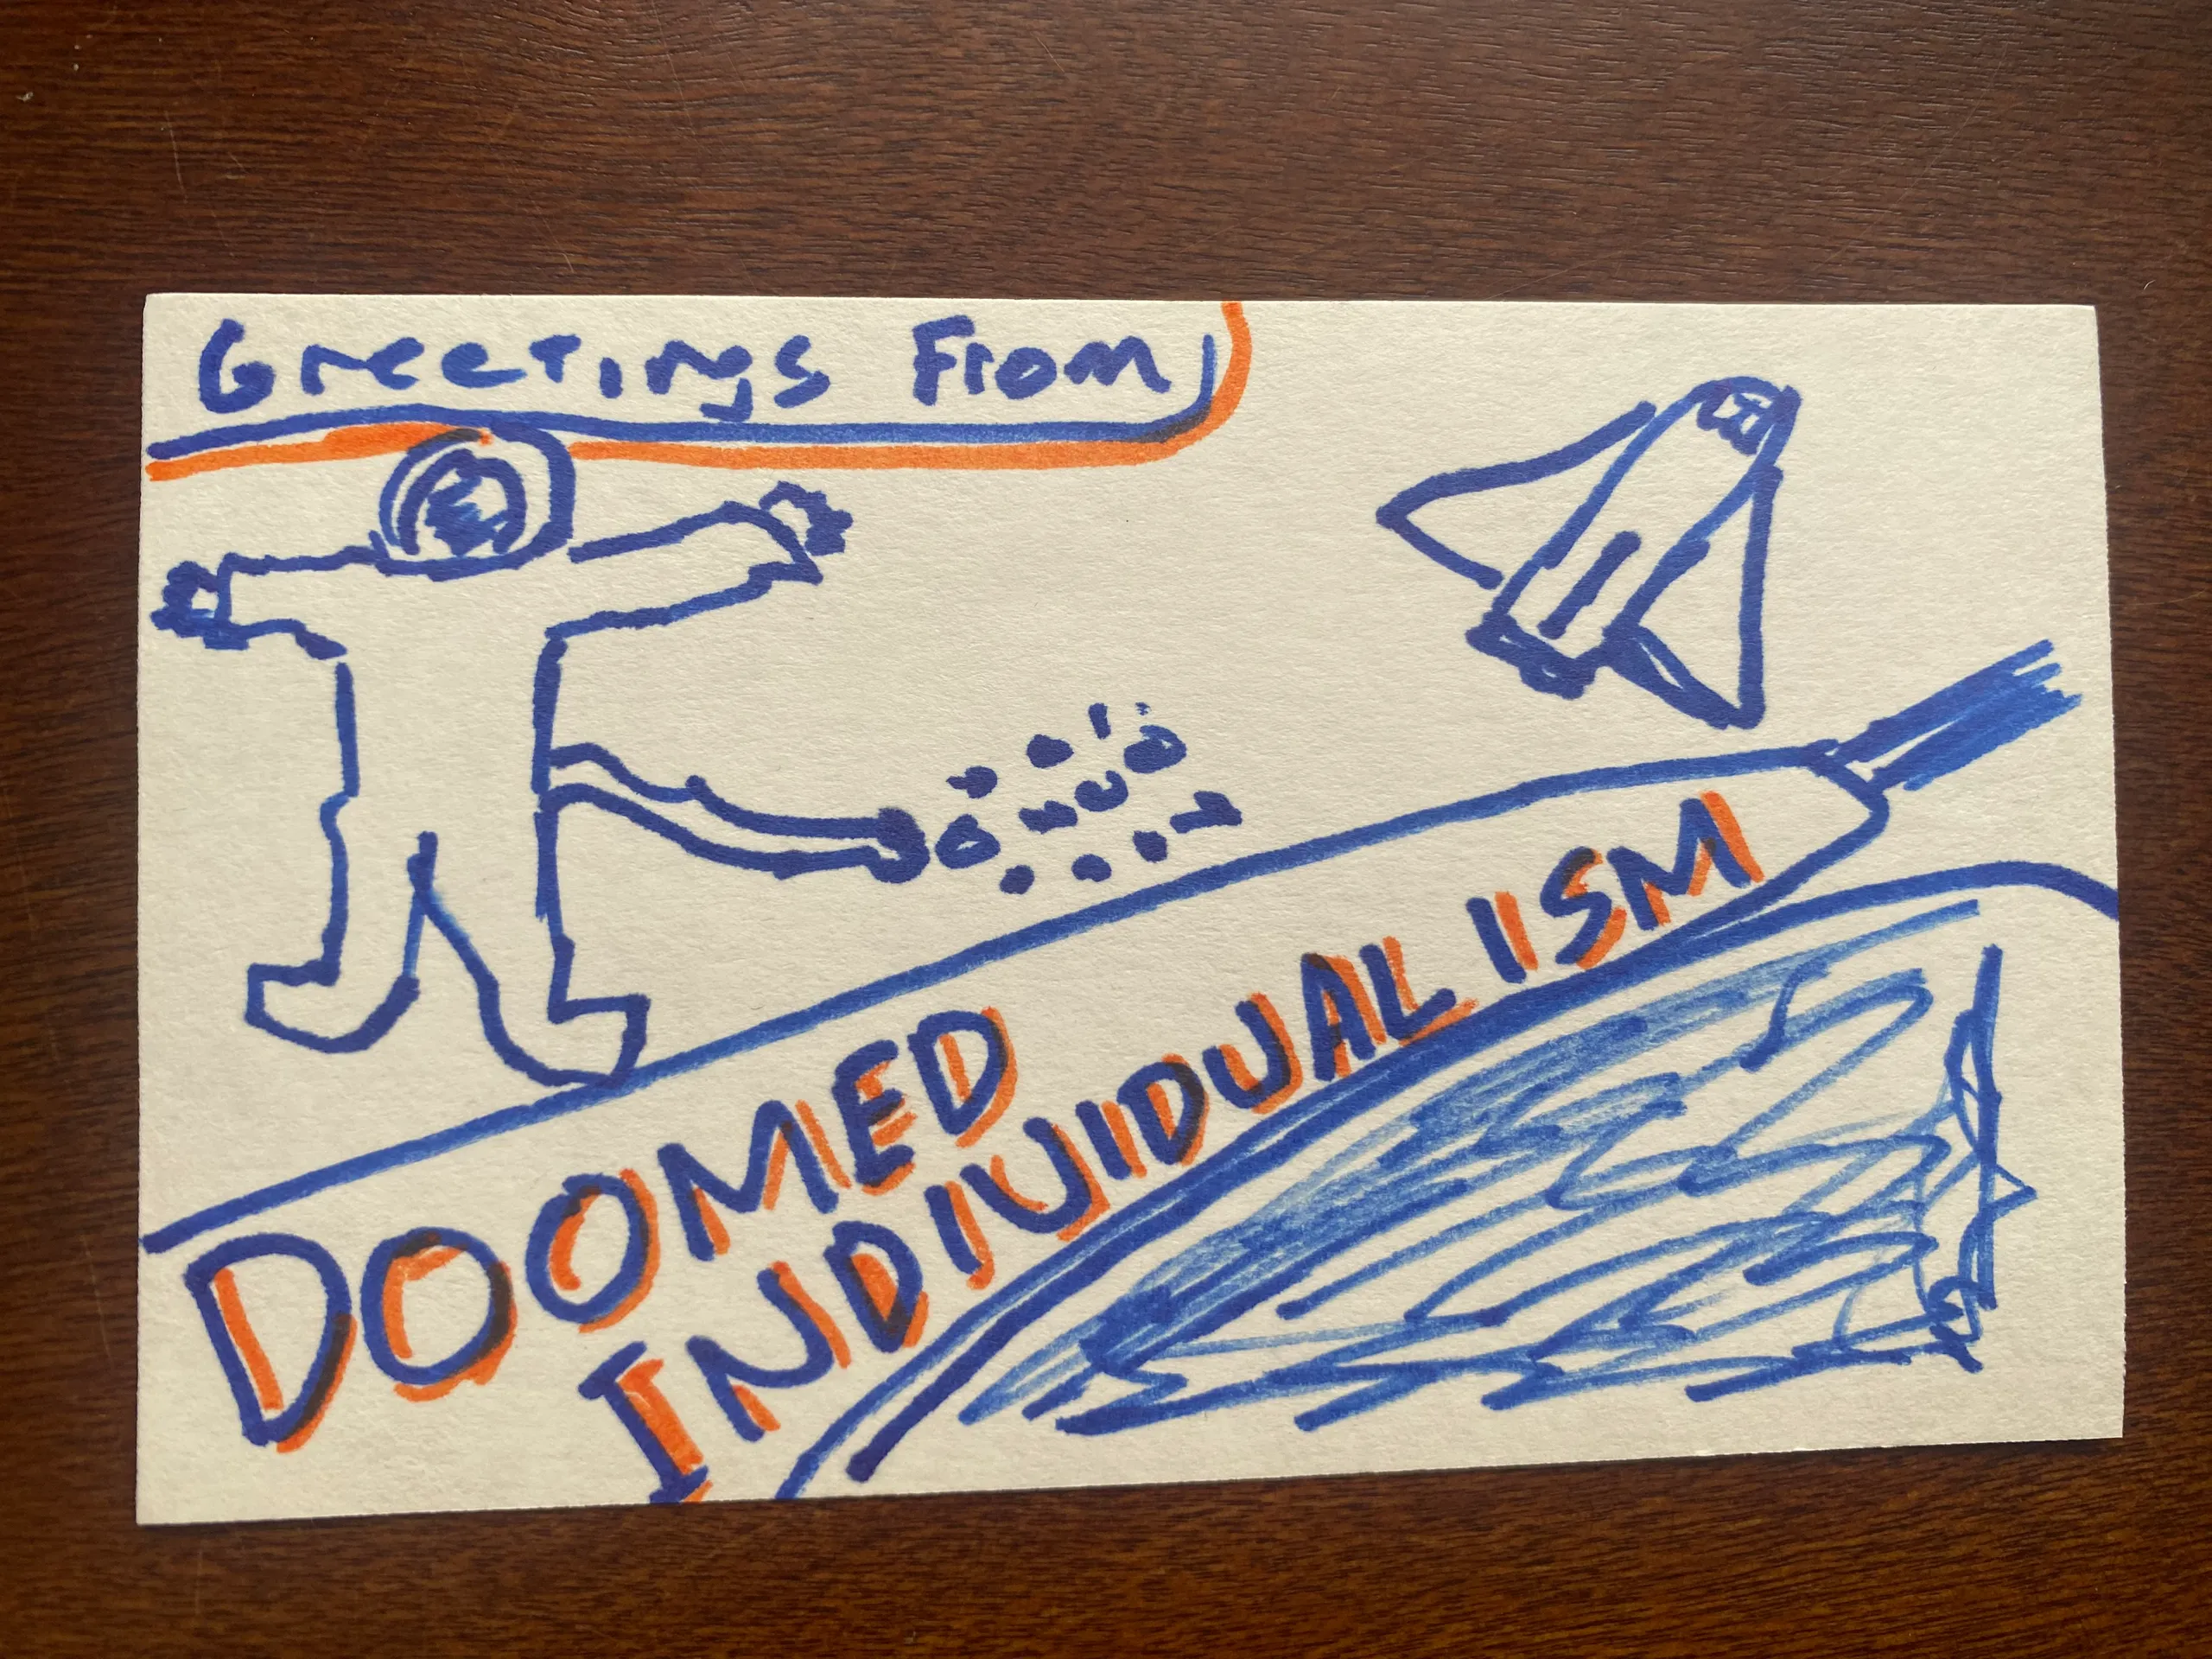 Greetings From
DOOMED
INDIVIDUALISM